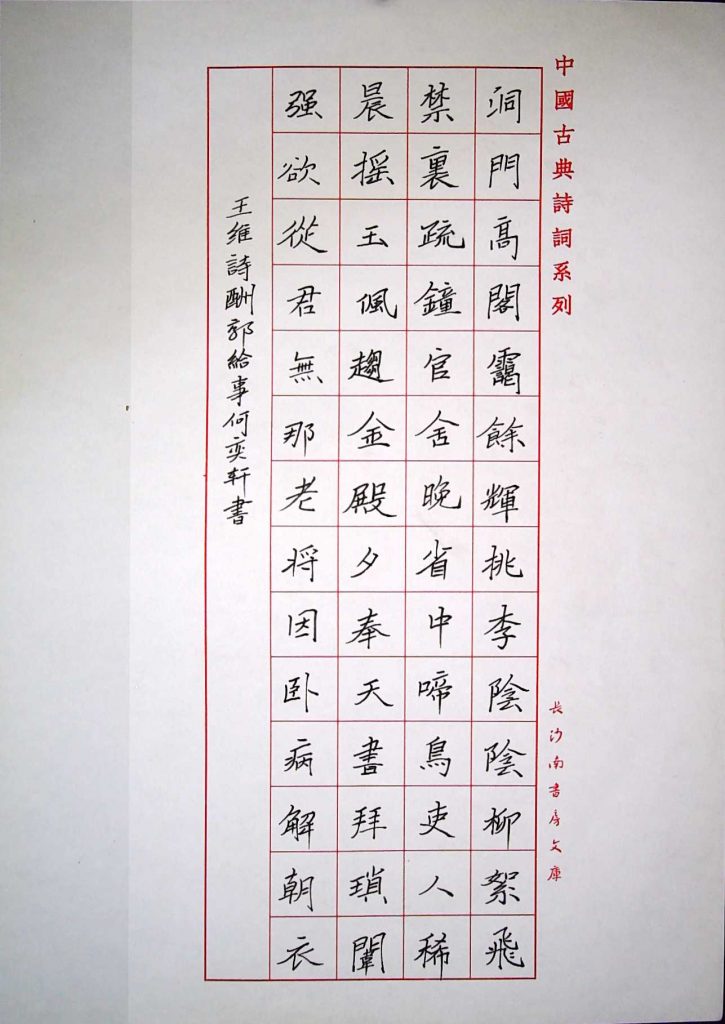 中國古典詩詞系列
長沙南書房文庫
洞門高閣靄餘輝桃李陰陰柳絮飛
禁裏疏鐘官舍晚省中啼鳥吏人稀
晨摇玉佩趨金殿夕奉天書拜瑣闈
强欲從君無那老将因卧病解朝衣
王維詩酬郭給事何奕轩書